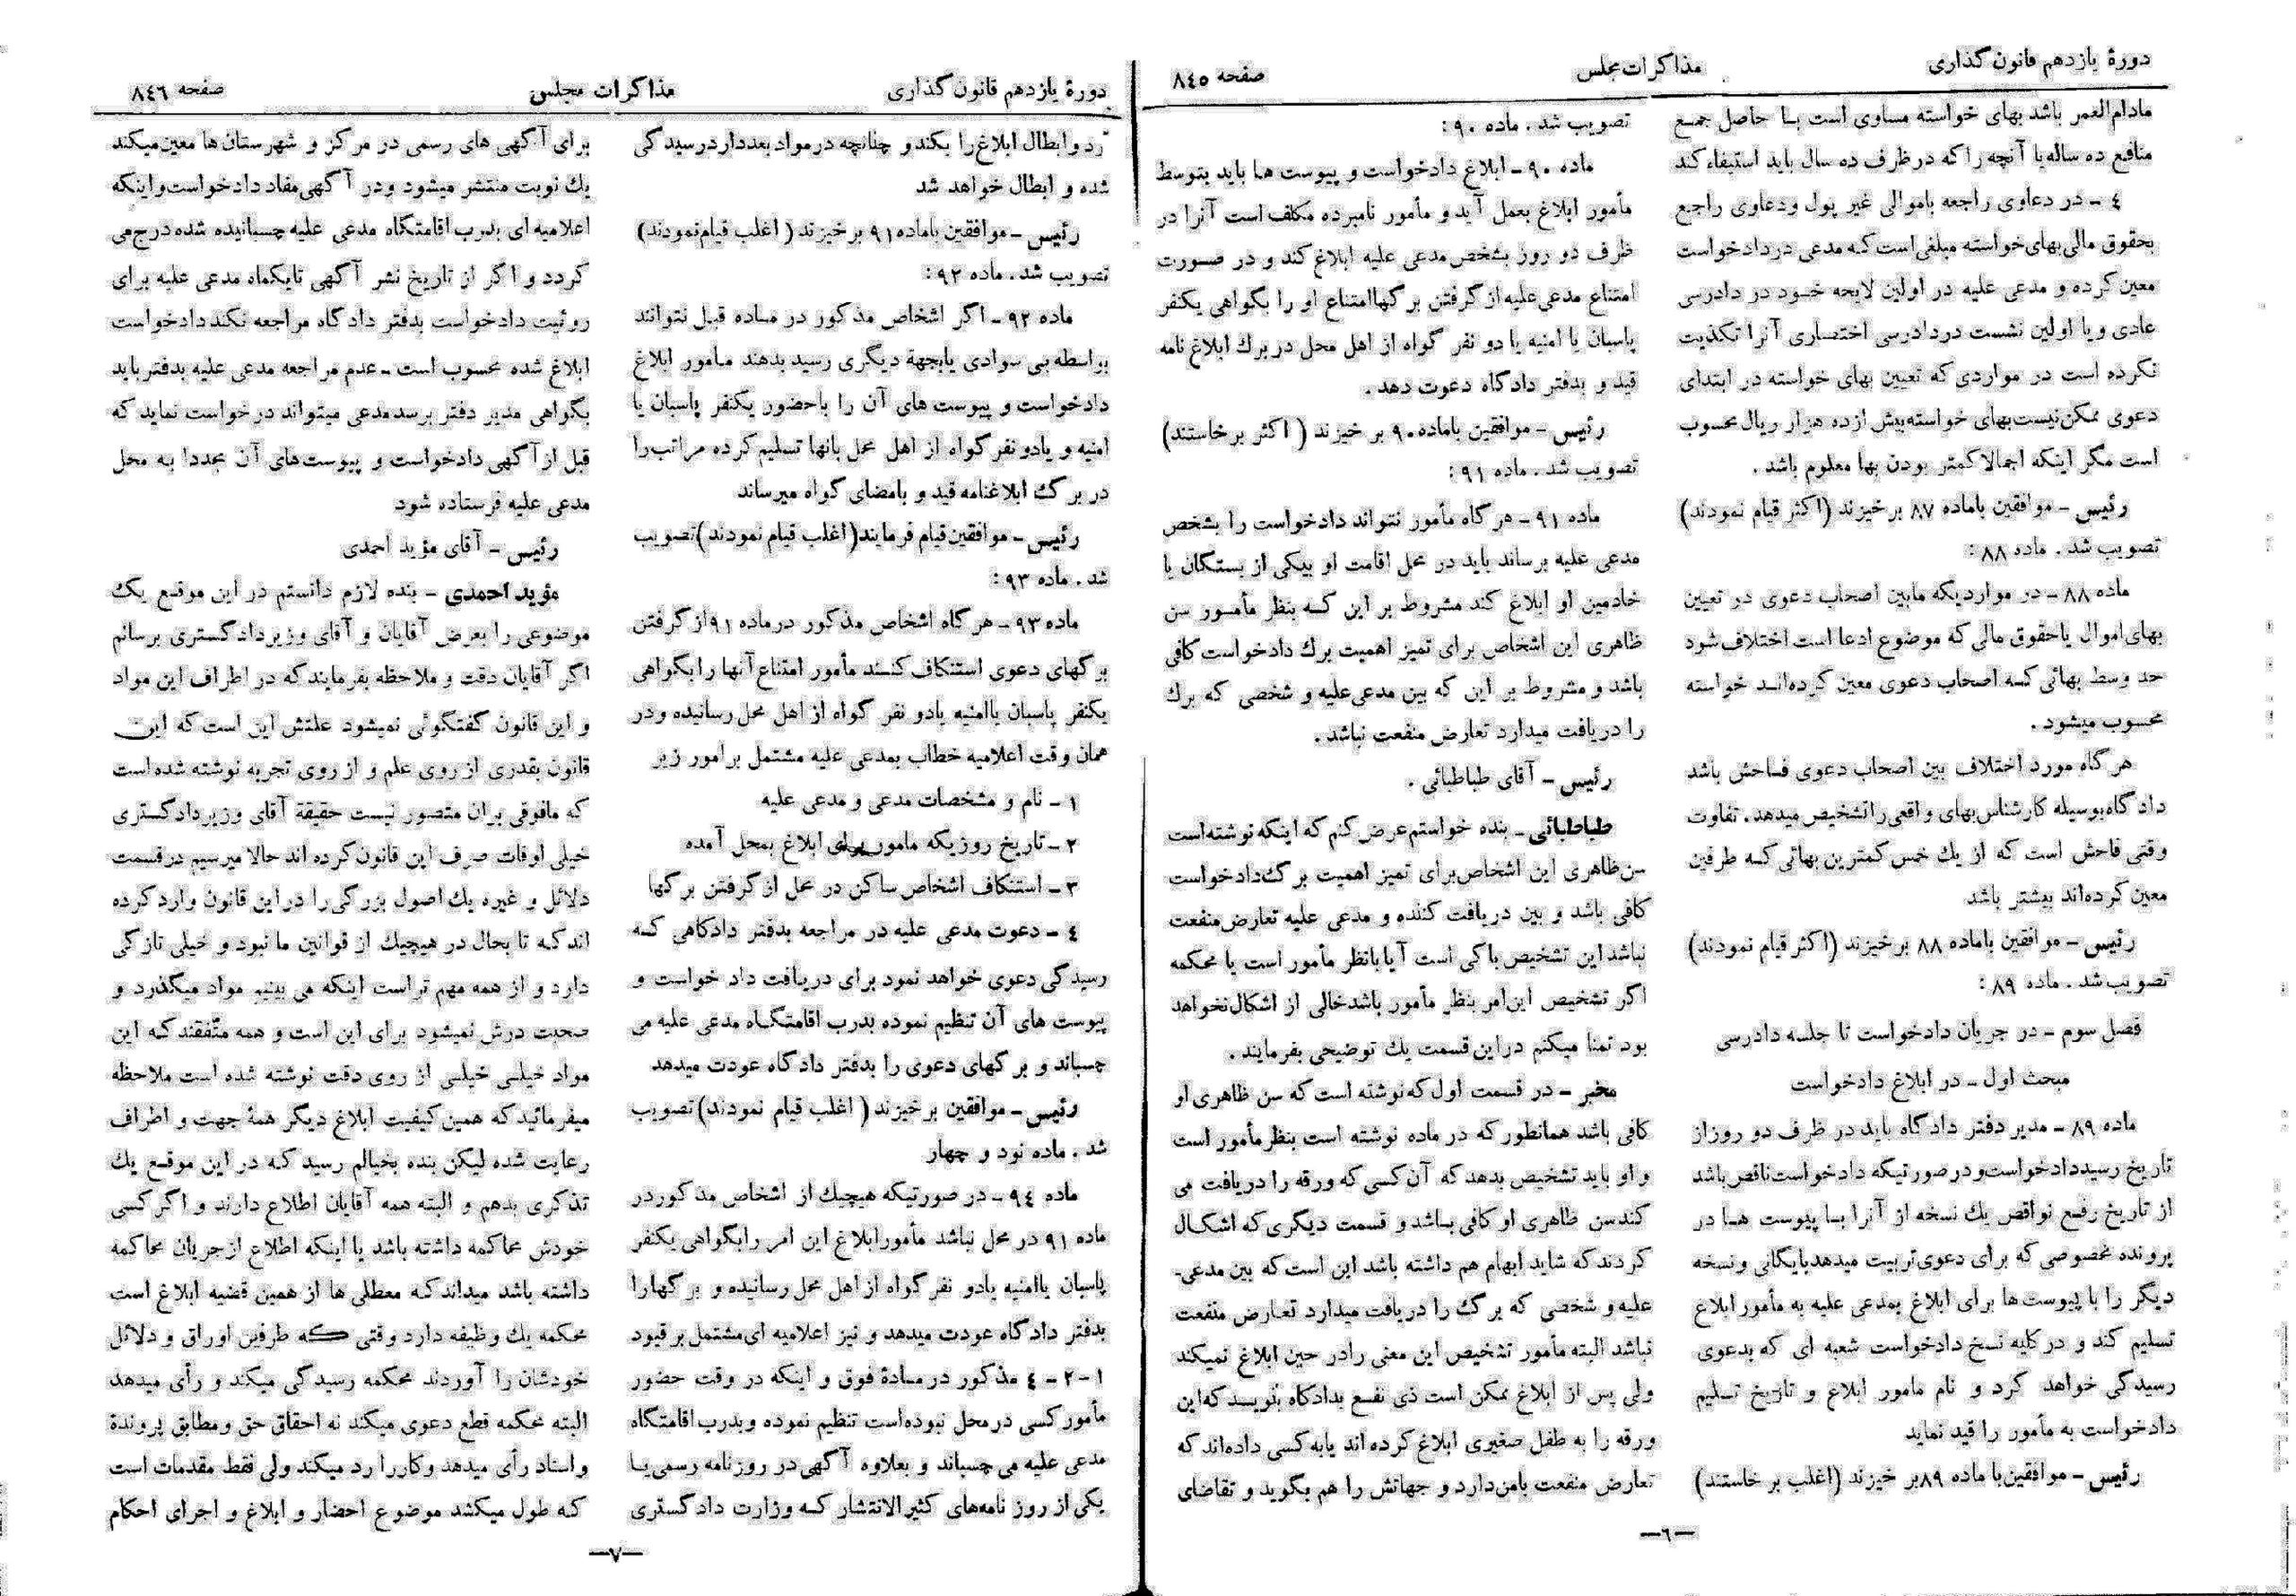 دورهٔ یازدهم قانون گذاری
مذاکرات مجلس
صفحه ۸۴۵
مادام‌العمر باشد بهای خواسته مساوی است با حاصل جمع
منافع ده ساله یا آنچه را که در ظرف ده سال باید استیفاء کند
۴ ـ در دعاوی راجعه باموالی غیر پول و دعاوی راجع
بحقوق مالی بهای خواسته مبلغی است که مدعی در دادخواست
معین کرده و مدعی علیه در اولین لایحه خود در دادرسی
عادی و یا اولین نشست در دادرسی اختصاری آنرا تکذیب
نکرده است در مواردی که تعیین بهای خواسته در ابتدای
دعوی ممکن نیست بهای خواسته بیش از ده هزار ریال محسوب
است مگر اینکه اجمالا کمتر بودن بها معلوم باشد .
رئیس ـ موافقین باماده ۸۷ برخیزند (اکثر قیام نمودند)
تصویب شد . ماده ۸۸ :
ماده ۸۸ ـ در مواردیکه مابین اصحاب دعوی در تعیین
بهای اموال یا حقوق مالی که موضوع ادعا است اختلاف شود
حد وسط بهائی که اصحاب دعوی معین کرده‌اند خواسته
محسوب میشود .
هر گاه مورد اختلاف بین اصحاب دعوی فاحش باشد
دادگاه بوسیله کارشناس بهای واقعی را تشخیص میدهد . تفاوت
وقتی فاحش است که از یك خمس کمترین بهائی که طرفین
معین کرده‌اند بیشتر باشد
رئیس ـ موافقین باماده ۸۸ برخیزند (اکثر قیام نمودند)
تصویب شد . ماده ۸۹ :
فصل سوم ـ در جریان دادخواست تا جلسه دادرسی
مبحث اول ـ در ابلاغ دادخواست
ماده ۸۹ ـ مدیر دفتر دادگاه باید در ظرف دو روز از
تاریخ رسید دادخواست و در صورتیکه دادخواست ناقص باشد
از تاریخ رفع نواقص یك نسخه از آنرا با پیوست ها در
پرونده مخصوصی که برای دعوی تربیت میدهد بایگانی و نسخه
دیگر را با پیوست ها برای ابلاغ بمدعی علیه به مأمور ابلاغ
تسلیم کند و در کلیه نسخ دادخواست شعبه ای که بدعوی
رسیدگی خواهد کرد و نام مامور ابلاغ و تاریخ تسلیم
دادخواست به مأمور را قید نماید
رئیس ـ موافقین با ماده ۸۹ بر خیزند (اغلب بر خاستند)
تصویب شد . ماده ۹۰ :
ماده ۹۰ ـ ابلاغ دادخواست و پیوست ها باید بتوسط
مأمور ابلاغ بعمل آید و مأمور نامبرده مکلف است آنرا در
ظرف دو روز بشخص مدعی علیه ابلاغ کند و در صورت
امتناع مدعی علیه از گرفتن برگها امتناع او را بگواهی یکنفر
پاسبان یا امنیه یا دو نفر گواه از اهل محل در برك ابلاغ نامه
قید و بدفتر دادگاه دعوت دهد .
رئیس ـ موافقین باماده ۹۰ بر خیزند ( اکثر برخاستند)
تصویب شد . ماده ۹۱ :
ماده ۹۱ ـ هر گاه مأمور نتواند دادخواست را بشخص
مدعی علیه برساند باید در محل اقامت او بیکی از بستگان یا
خادمین او ابلاغ کند مشروط بر این که بنظر مأمور سن
ظاهری این اشخاص برای تمیز اهمیت برك دادخواست کافی
باشد و مشروط بر این که بین مدعی علیه و شخصی که برك
را دریافت میدارد تعارض منفعت نباشد .
رئیس ـ آقای طباطبائی .
طباطبائی ـ بنده خواستم عرض کنم که اینکه نوشته است
سن ظاهری این اشخاص برای تمیز اهمیت برگ دادخواست
کافی باشد و بین دریافت کننده و مدعی علیه تعارض منفعت
نباشد این تشخیص باکی است آیا بانظر مأمور است یا محکمه
اگر تشخیص این امر بنظر مأمور باشد خالی از اشکال نخواهد
بود تمنا میکنم در این قسمت یك توضیحی بفرمایند .
مخبر ـ در قسمت اول که نوشته است که سن ظاهری او
کافی باشد همانطور که در ماده نوشته است بنظر مأمور است
و او باید تشخیص بدهد که آن کسی که ورقه را دریافت می
کند سن ظاهری او کافی باشد و قسمت دیگری که اشکال
کردند که شاید ابهام هم داشته باشد این است که بین مدعی‌ـ
علیه و شخصی که برگ را دریافت میدارد تعارض منفعت
نباشد البته مأمور تشخیص این معنی را در حین ابلاغ نمیکند
ولی پس از ابلاغ ممکن است ذی نفع بدادگاه بگوید که این
ورقه را به طفل صغیری ابلاغ کرده اند یا به کسی داده‌اند که
تعارض منفعت با من دارد و جهاتش را هم بگوید و تقاضای
ـ۶ـ
دورهٔ یازدهم قانون گذاری
مذاکرات مجلس
صفحه ۸۴۶
رد و ابطال ابلاغ را بکند و چنانچه در مواد بعد دارد رسیدگی
شده و ابطال خواهد شد
رئیس ـ موافقین باماده ۹۱ برخیزند ( اغلب قیام نمودند)
تصویب شد . ماده ۹۲ :
ماده ۹۲ ـ اگر اشخاص مذکور در ماده قبل نتوانند
بواسطه بی سوادی یا بجهة دیگری رسید بدهند مأمور ابلاغ
دادخواست و پیوست های آن را باحضور یکنفر پاسبان یا
امنیه و یادو نفر گواه از اهل محل بانها تسلیم کرده مراتب را
در برگ ابلاغنامه قید و بامضای گواه میرساند
رئیس ـ موافقین قیام فرمایند (اغلب قیام نمودند) تصویب
شد . ماده ۹۳ :
ماده ۹۳ ـ هر گاه اشخاص مذکور در ماده ۹۱ از گرفتن
برگهای دعوی استنکاف کنند مأمور امتناع آنها را بگواهی
یکنفر پاسبان یا امنیه یادو نفر گواه از اهل محل رسانیده و در
همان وقت اعلامیه خطاب بمدعی علیه مشتمل بر امور زیر
۱ ـ نام و مشخصات مدعی و مدعی علیه
۲ ـ تاریخ روزیکه مامور برای ابلاغ بمحل آمده
۳ ـ استنکاف اشخاص ساکن در محل از گرفتن برگها
۴ ـ دعوت مدعی علیه در مراجعه بدفتر دادگاهی که
رسیدگی دعوی خواهد نمود برای دریافت داد خواست و
پیوست های آن تنظیم نموده بدرب اقامتگاه مدعی علیه می
چسباند و برگهای دعوی را بدفتر دادگاه عودت میدهد
رئیس ـ موافقین برخیزند ( اغلب قیام نمودند) تصویب
شد . ماده نود و چهار
ماده ۹۴ ـ در صورتیکه هیچیك از اشخاص مذکور در
ماده ۹۱ در محل نباشد مأمور ابلاغ این امر را بگواهی یکنفر
پاسبان یا امنیه یادو نفر گواه از اهل محل رسانیده و برگها را
بدفتر دادگاه عودت میدهد و نیز اعلامیه ای مشتمل بر قیود
۱-۲ - ۴ مذکور در مادهٔ فوق و اینکه در وقت حضور
مأمور کسی در محل نبوده است تنظیم نموده و بدرب اقامتگاه
مدعی علیه می چسباند و بعلاوه آگهی در روزنامه رسمی یا
یکی از روز نامه‌های کثیر الانتشار که وزارت دادگستری
برای آگهی های رسمی در مرکز و شهرستان ها معین میکند
یك نوبت منتشر میشود و در آگهی مفاد دادخواست و اینکه
اعلامیه ای بدرب اقامتگاه مدعی علیه چسبانیده شده درج می
گردد و اگر از تاریخ نشر آگهی تا یکماه مدعی علیه برای
روئیت دادخواست بدفتر دادگاه مراجعه نکند دادخواست
ابلاغ شده محسوب است ـ عدم مراجعه مدعی علیه بدفتر باید
بگواهی مدیر دفتر برسد مدعی میتواند درخواست نماید که
قبل از آگهی دادخواست و پیوست‌های آن مجددا به محل
مدعی علیه فرستاده شود
رئیس ـ آقای مؤید احمدی
مؤید احمدی ـ بنده لازم دانستم در این موقع یك
موضوعی را بعرض آقایان و آقای وزیر دادگستری برسانم
اگر آقایان دقت و ملاحظه بفرمایند که در اطراف این مواد
و این قانون گفتگوئی نمیشود علتش این است که این
قانون بقدری از روی علم و از روی تجربه نوشته شده است
که مافوقی بران متصور نیست حقیقة آقای وزیر دادگستری
خیلی اوقات صرف این قانون کرده اند حالا میرسیم در قسمت
دلائل و غیره یك اصول بزرگی را در این قانون وارد کرده
اند که تا بحال در هیچیك از قوانین ما نبود و خیلی تازگی
دارد و از همه مهم تر است اینکه می بینیم مواد میگذرد و
صحبت درش نمیشود برای این است و همه متّفقند که این
مواد خیلی خیلی از روی دقت نوشته شده است ملاحظه
میفرمائید که همین کیفیت ابلاغ دیگر همهٔ جهت و اطراف
رعایت شده لیکن بنده بخیالم رسید که در این موقع یك
تذکری بدهم و البته همه آقایان اطلاع دارند و اگر کسی
خودش محاکمه داشته باشد یا اینکه اطلاع از جریان محاکمه
داشته باشد میداند که معطلی ها از همین قضیه ابلاغ است
محکمه یك وظیفه دارد وقتی که طرفین اوراق و دلائل
خودشان را آوردند محکمه رسیدگی میکند و رأی میدهد
البته محکمه قطع دعوی میکند نه احقاق حق و مطابق پروندهٔ
و اسناد رأی میدهد و کار را رد میکند ولی فقط مقدمات است
که طول میکشد موضوع احضار و ابلاغ و اجرای احکام
ـ۷ـ